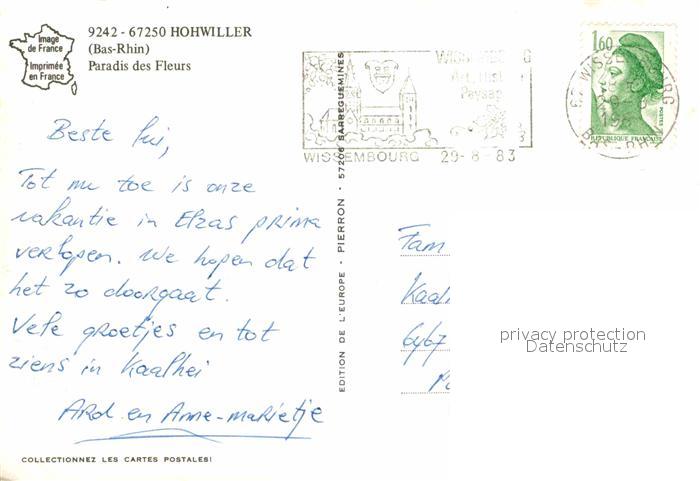 Image
de France
Imprimée
en France
9242 - 67250 HOHWILLER
(Bas-Rhin)
Paradis des Fleurs
Beste lui,
Tot nu toe is onze
vakantie in Elzas prima
verlopen. We hopen dat
het zo doorgaat.
Vele groetjes en tot
ziens in Kaalhei
Ard en Anne-marietje
COLLECTIONNEZ LES CARTES POSTALES!
EDITION DE L'EUROPE • PIERRON • 57206 SARREGUEMINES
WISSEMBOURG 29-8-83
1,60
REPUBLIQUE FRANÇAISE
POSTES
Fam
Kaalh
6467
privacy protection
Datenschutz